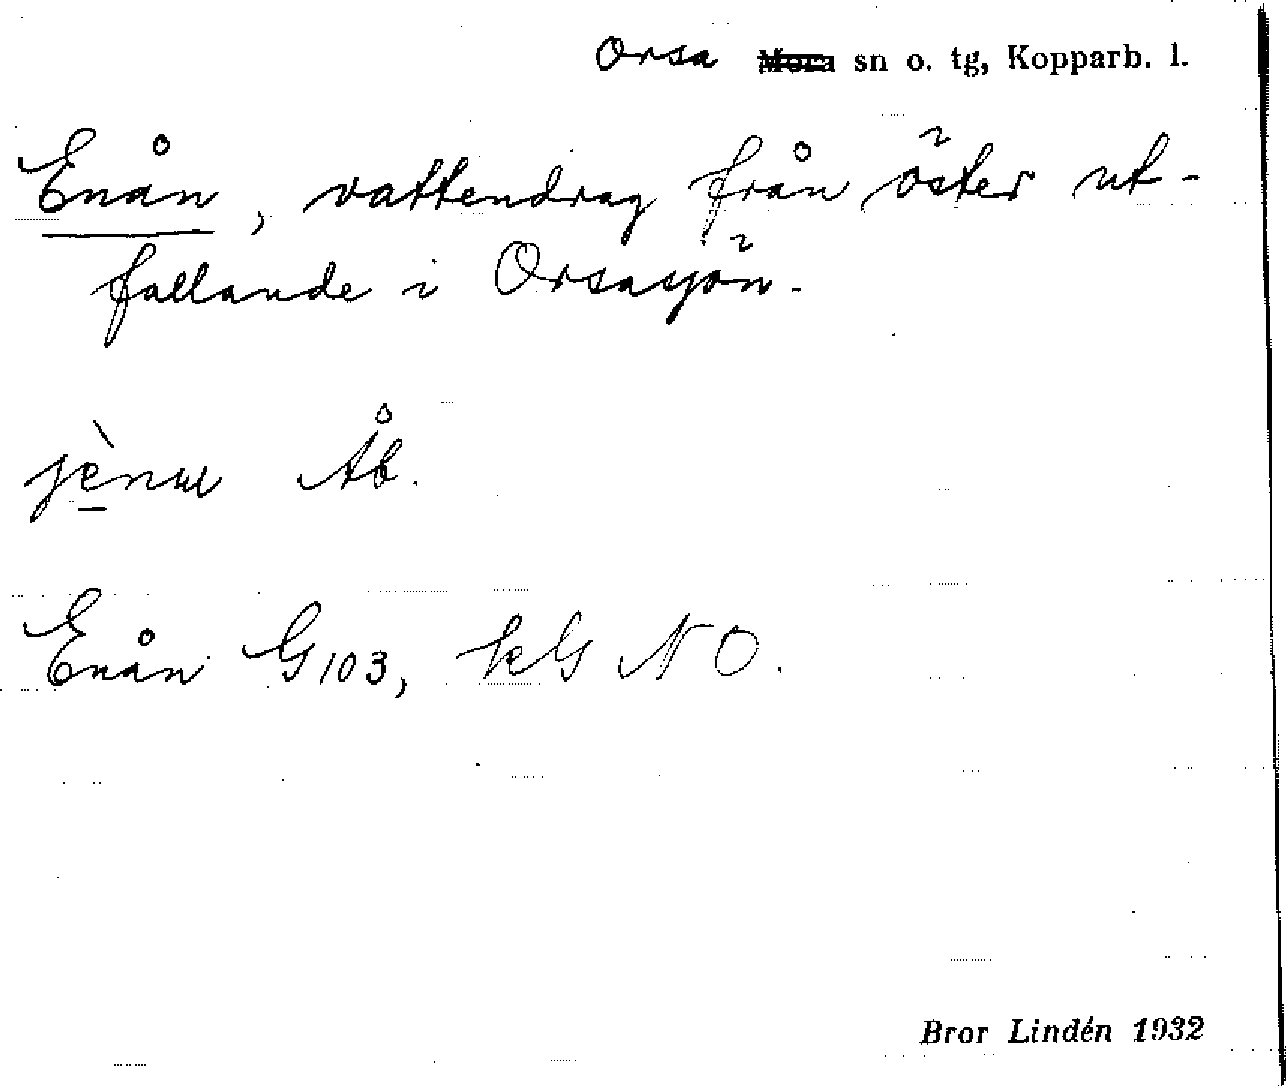 Orsa ~~Mora~~ sn o. tg, Kopparb. l.
Enån, vattendrag från öster ut-
fallande i Orsasjön.
Åb.
Enån G103, NO.
Bror Lindén 1932